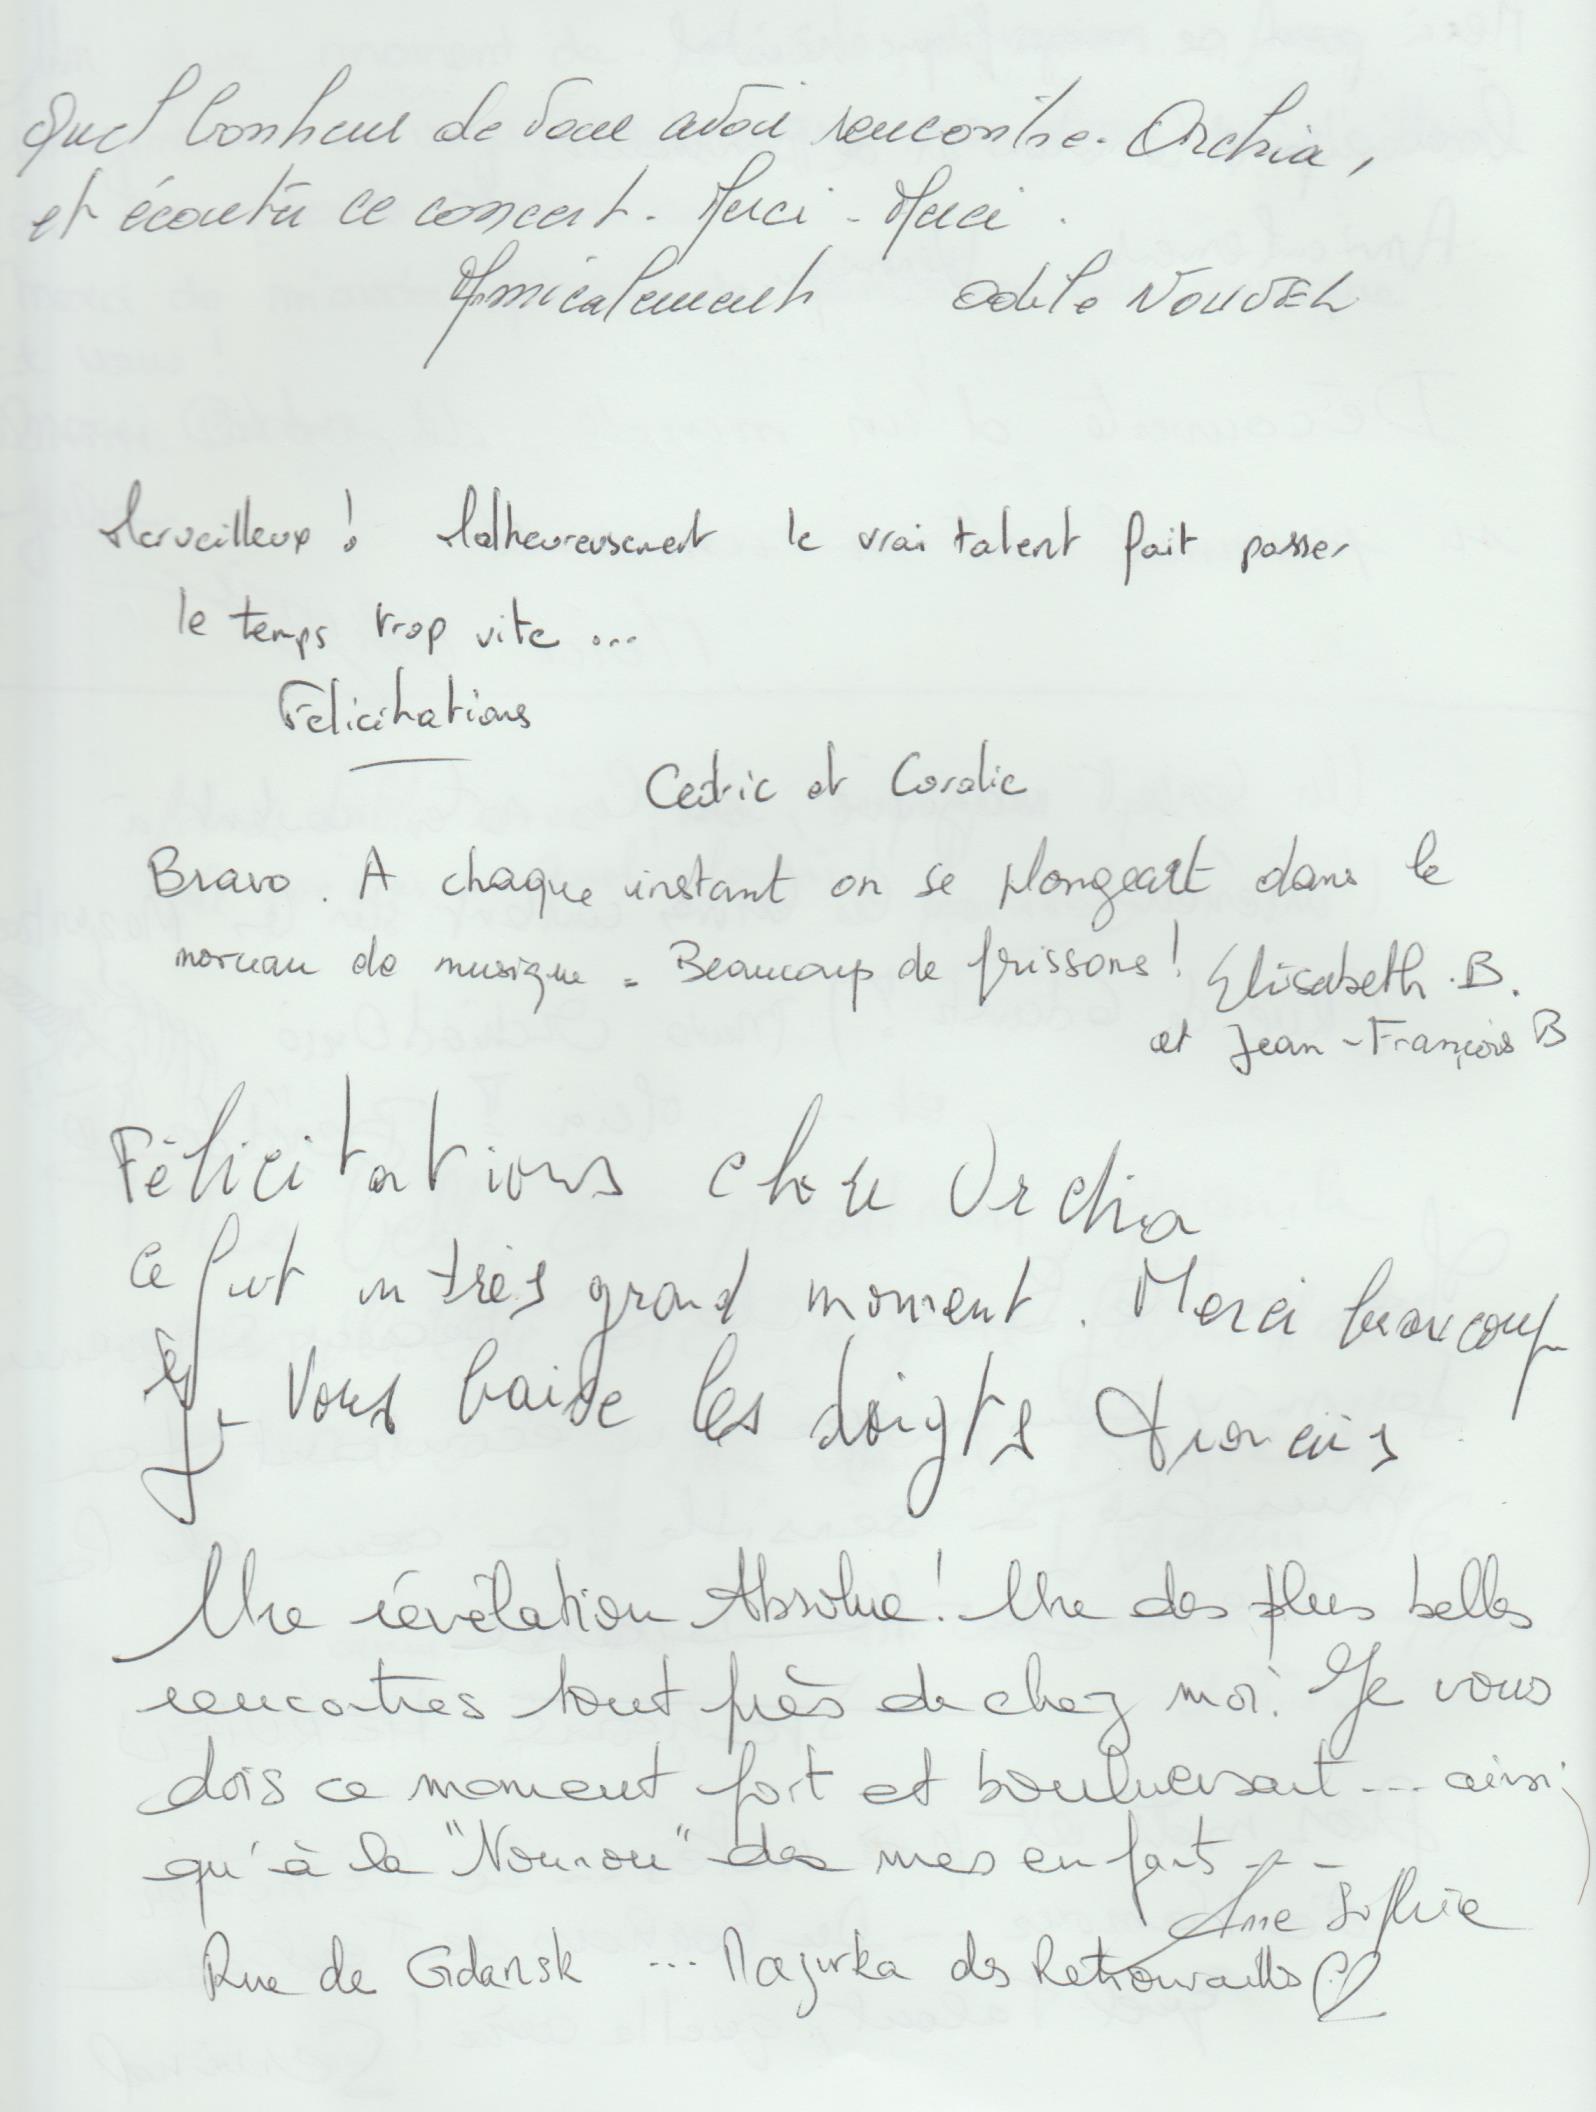 Quel bonheur de vous avoir rencontré. Orchia,
et écouter ce concert. Merci - Merci.
Amicalement Odile NOUVEL
Merveilleux ! Malheureusement le vrai talent fait passer
le temps trop vite ...
Félicitations
Cédric et Coralie
Bravo. A chaque instant on se plongeait dans le
morceau de musique. Beaucoup de frissons ! Elisabeth .B.
et Jean-François B
Félicitations chère Orchia
Ce fut un très grand moment. Merci beaucoup
Je vous baise les doigts François
Une révélation Absolue ! Une des plus belles
rencontres tout près de chez moi. Je vous
dois ce moment fort et bouleversant... ainsi
qu'à la "Nounou" de mes enfants...
Anne Sophie
Rue de Gdansk ... Mazurka des Retrouvailles